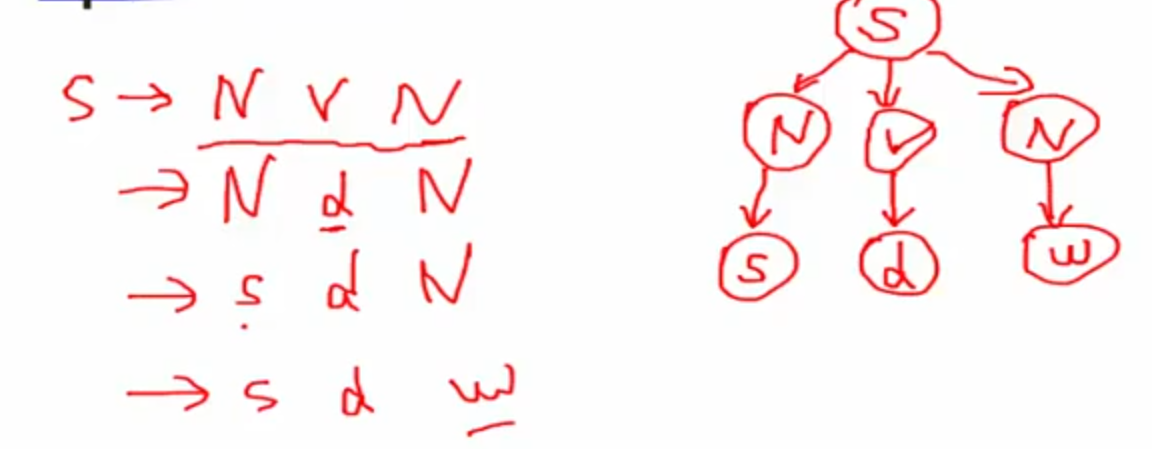 S → N V N
→ N d N
→ s d N
→ s d w
S
N V N
s d w